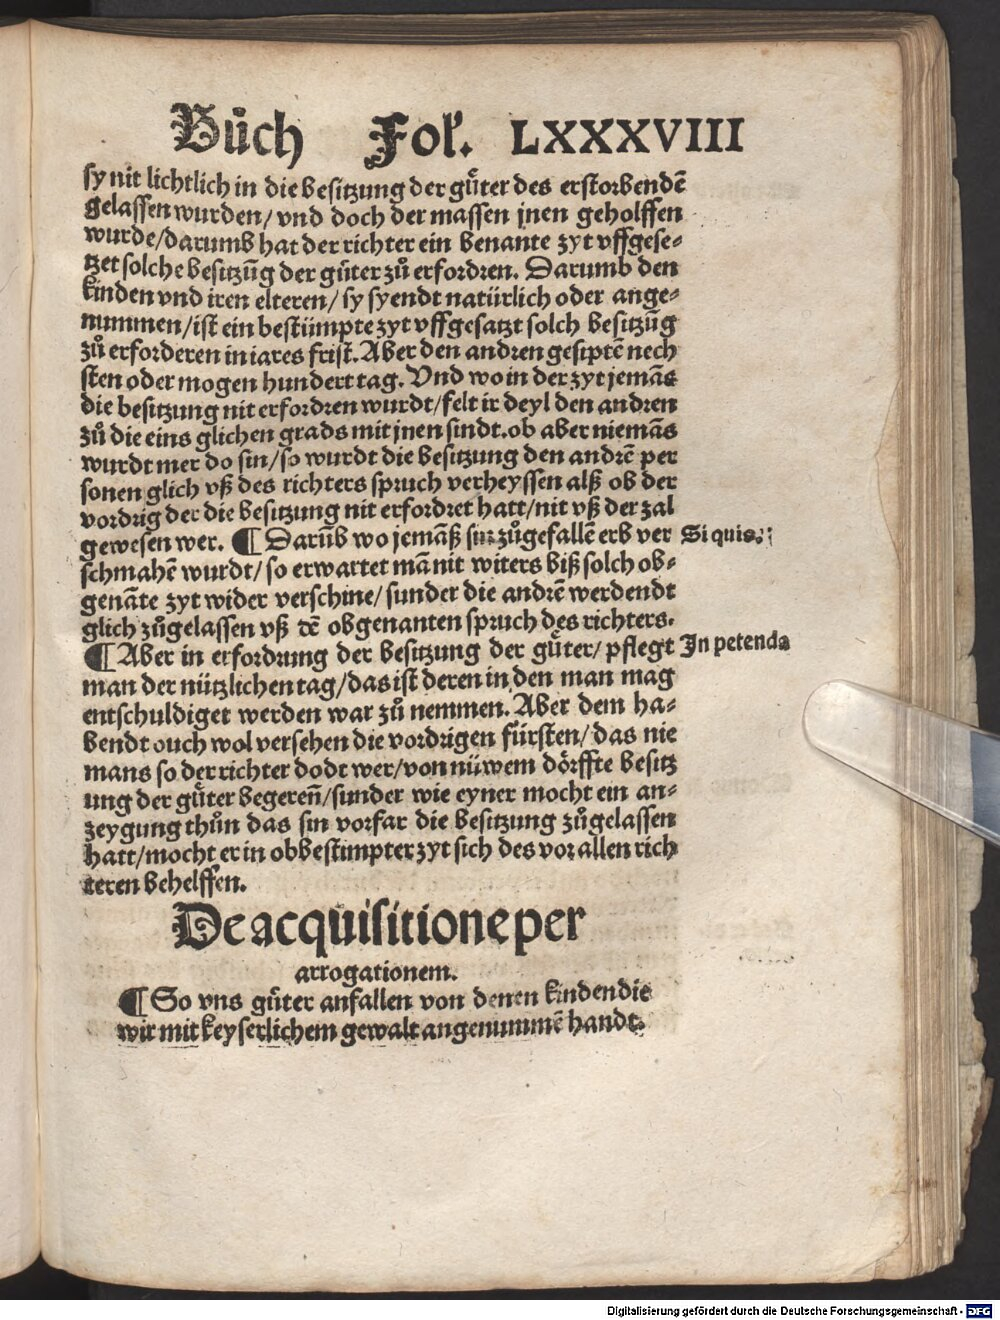 Bůch Fol'. LXXXVIII
sy nit lichtlich in die besitzung der gůter des erstorbendē
gelassen wurden/ vnd doch der massen jnen geholffen
wurde/darumb hat der richter ein benante zyt vffgese⸗
tzet solche besitzūg der gůter zů erfordren. Darumb den
kinden vnd iren elteren/ sy syendt natürlich oder ange⸗
nummen/ist ein bestümpte zyt vffgesatzt solch besitzūg
zů erforderen in iares frist. Aber den andren gesiptē nech
sten oder mogen hundert tag. Vnd wo in der zyt jemās
die besitzung nit erfordren wurdt/felt ir deyl den andren
zů die eins glichen grads mit jnen sindt.ob aber niemās
wurdt mer do sin/so wurdt die besitzung den andrē per
sonen glich vß des richters spruch verheyssen alß ob der
vordrig der die besitzung nit erfordret hatt/nit vß der zal
gewesen wer. ¶ Darūb wo jemāß sin zůgefallē erb ver
Si quis.
schmahē wurdt/ so erwartet mā nit witers biß solch ob⸗
genāte zyt wider verschine/ sunder die andrē werdendt
glich zůgelassen vß dē obgenanten spruch des richters.
¶ Aber in erfordrung der besitzung der gůter/ pflegt
In petenda
man der nützlichen tag/das ist deren in den man mag
entschuldiget werden war zů nemmen. Aber dem ha⸗
bendt ouch wol versehen die vordrigen fürsten/ das nie
mans so der richter dodt wer/von nüwem dörffte besitz
ung der gůter begereñ/sunder wie eyner mocht ein an⸗
zeygung thůn das sin vorfar die besitzung zůgelassen
hatt/mocht er in obbestimpter zyt sich des vor allen rich
teren behelffen.
De acquisitione per
arrogationem.
¶ So vns gůter anfallen von denen kinden die
wir mit keyserlichem gewalt angenummē handt.
Digitalisierung gefördert durch die Deutsche Forschungsgemeinschaft - DFG